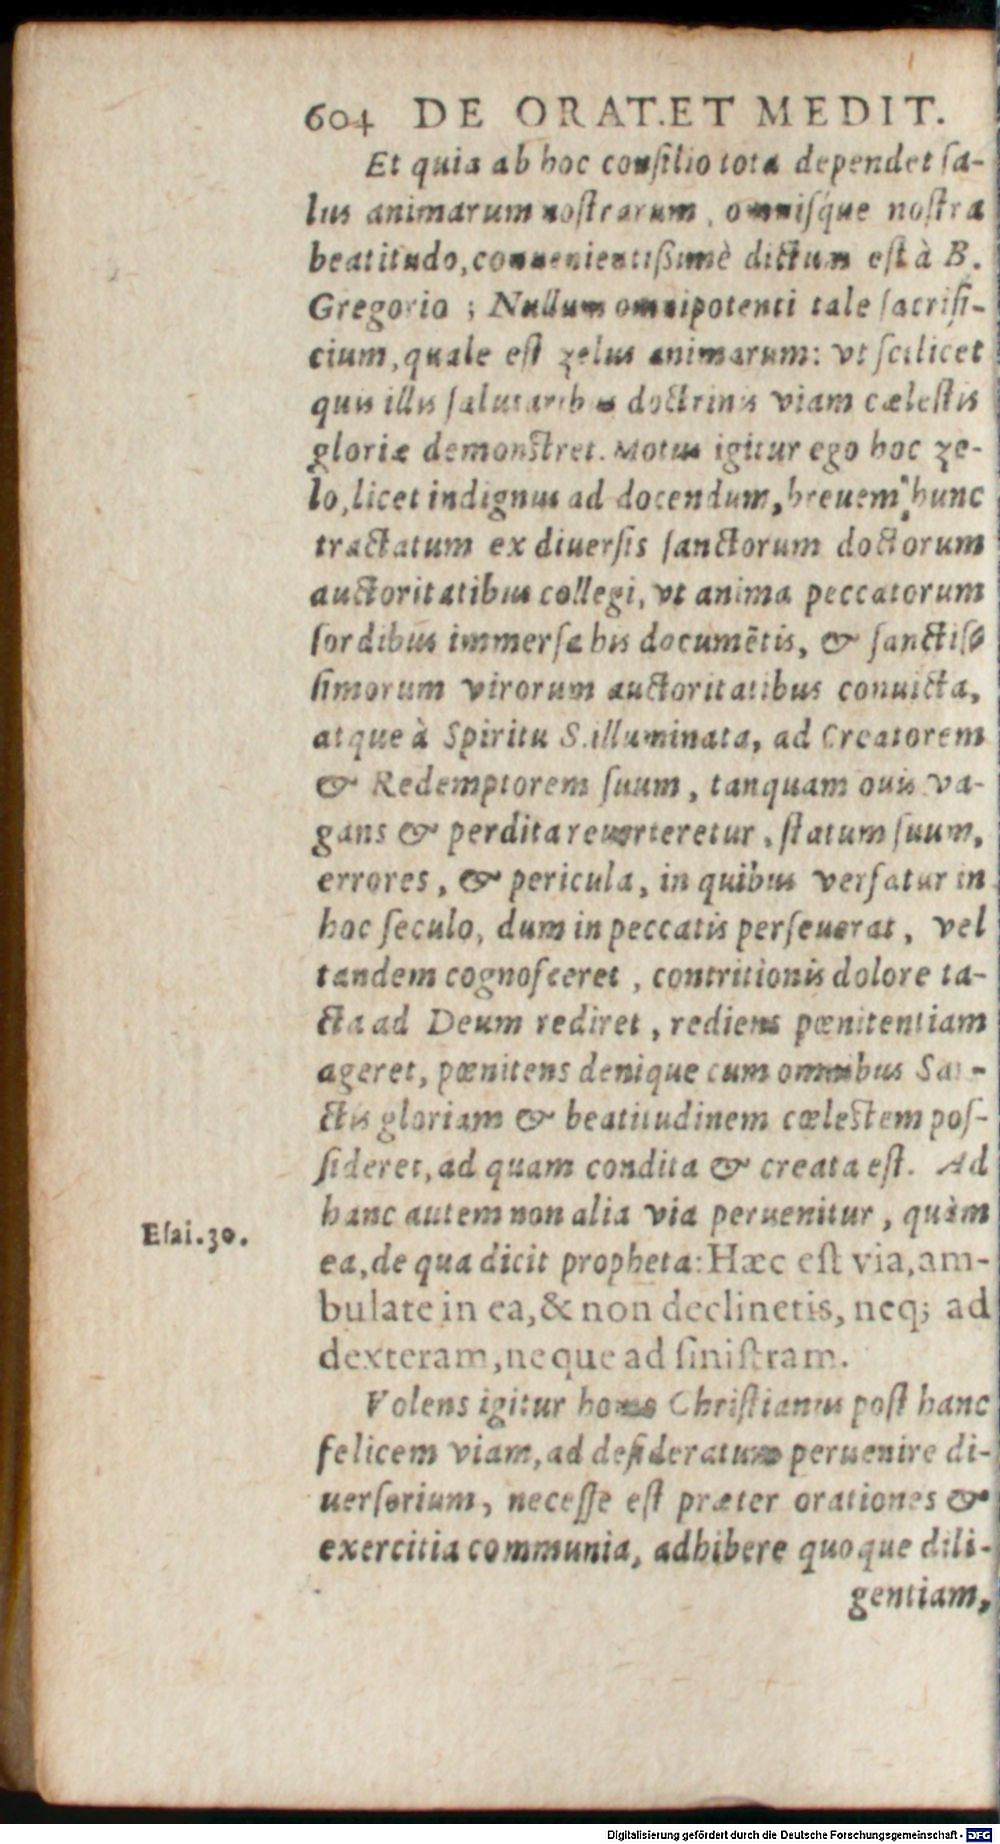 604 DE ORAT.ET MEDIT.
Et quia ab hoc consilio tota dependet sa-
lus animarum nostrarum, omnisq́ue nostra
beatitudo, conuenientissimè dictum est à B.
Gregorio ; Nullum omnipotenti tale sacrifi-
cium, quale est zelus animarum: vt scilicet
quis illis salutaribus doctrinis viam cælestis
gloriæ demonstret. Motus igitur ego hoc ze-
lo, licet indignus ad docendum, breuem hunc
tractatum ex diuersis sanctorum doctorum
auctoritatibus collegi, vt anima peccatorum
sordibus immersa his documētis, & sanctis-
simorum virorum auctoritatibus conuicta,
atque à Spiritu S. illuminata, ad Creatorem
& Redemptorem suum, tanquam ouis va-
gans & perdita reuerteretur, statum suum,
errores, & pericula, in quibus versatur in
hoc seculo, dum in peccatis perseuerat, vel
tandem cognosceret, contritionis dolore ta-
cta ad Deum rediret, rediens pœnitentiam
ageret, pœnitens denique cum omnibus San-
ctis gloriam & beatitudinem cœlestem pos-
sideret, ad quam condita & creata est. Ad
hanc autem non alia via peruenitur, quàm
Esai.30.
ea, de qua dicit propheta: Hæc est via, am-
bulate in ea, & non declinetis, neq; ad
dexteram, neque ad sinistram.
Volens igitur homo Christianus post hanc
felicem viam, ad desideratum peruenire di-
uersorium, necesse est præter orationes &
exercitia communia, adhibere quoque dili-
gentiam,
Digitalisierung gefördert durch die Deutsche Forschungsgemeinschaft - DFG